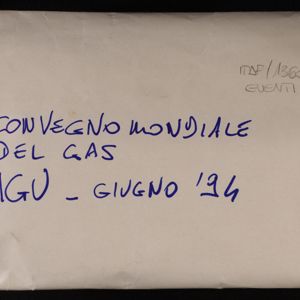 EVENTI
CONVEGNO MONDIALE
DEL GAS
IGU - GIUGNO '94